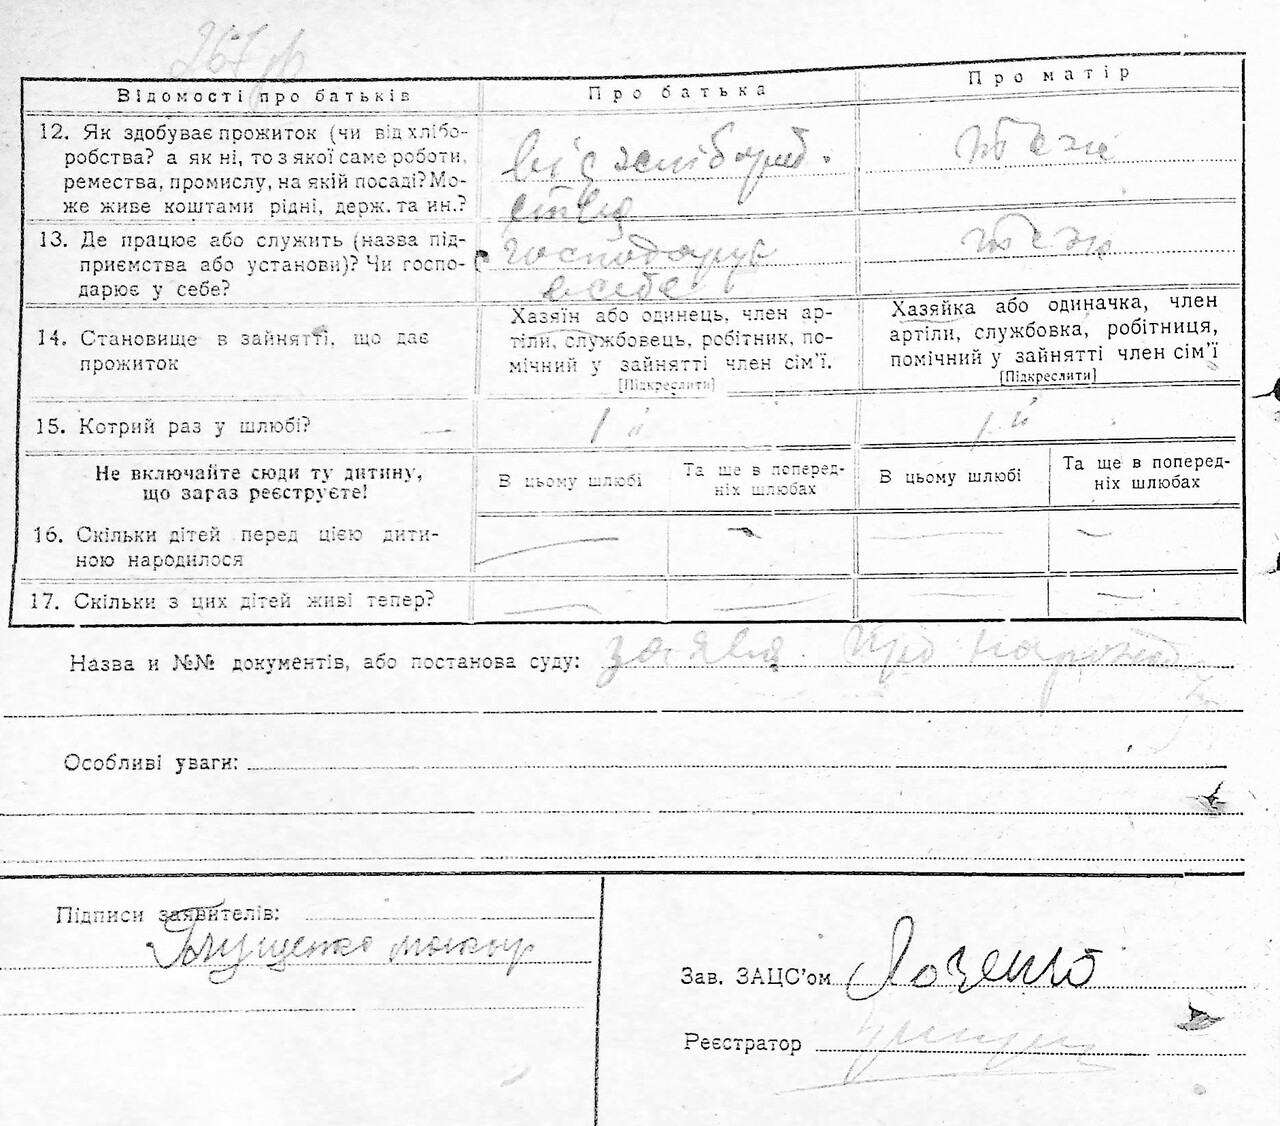 Відомості про батьків
Про батька
Про матір
12. Як здобуває прожиток (чи від хлібо-
робства? а як ні, то з якої саме роботи,
ремества, промислу, на якій посаді? Мо-
же живе коштами рідні, держ. та ин.?
від хлібороб.
ства
13. Де працює або служить (назва під-
приємства або установи)? Чи госпо-
дарює у себе?
господарує
в себе
14. Становище в зайнятті, що дає
прожиток
Хазяїн або одинець, член ар-
тіли, службовець, робітник, по-
мічний у зайнятті член сім'ї.
[Підкреслити]
Хазяйка або одиначка, член
артіли, службовка, робітниця,
помічний у зайнятті член сім'ї
[Підкреслити]
15. Котрий раз у шлюбі?
1 й
1 й
Не включайте сюди ту дитину,
що зараз реєструєте!
В цьому шлюбі
Та ще в поперед-
ніх шлюбах
В цьому шлюбі
Та ще в поперед-
ніх шлюбах
16. Скільки дітей перед цією дити-
ною народилося
17. Скільки з цих дітей живі тепер?
Назва и №№ документів, або постанова суду: заява про народ
Особливі уваги:
Підписи заявителів:
Зав. ЗАЦС'ом
Реєстратор